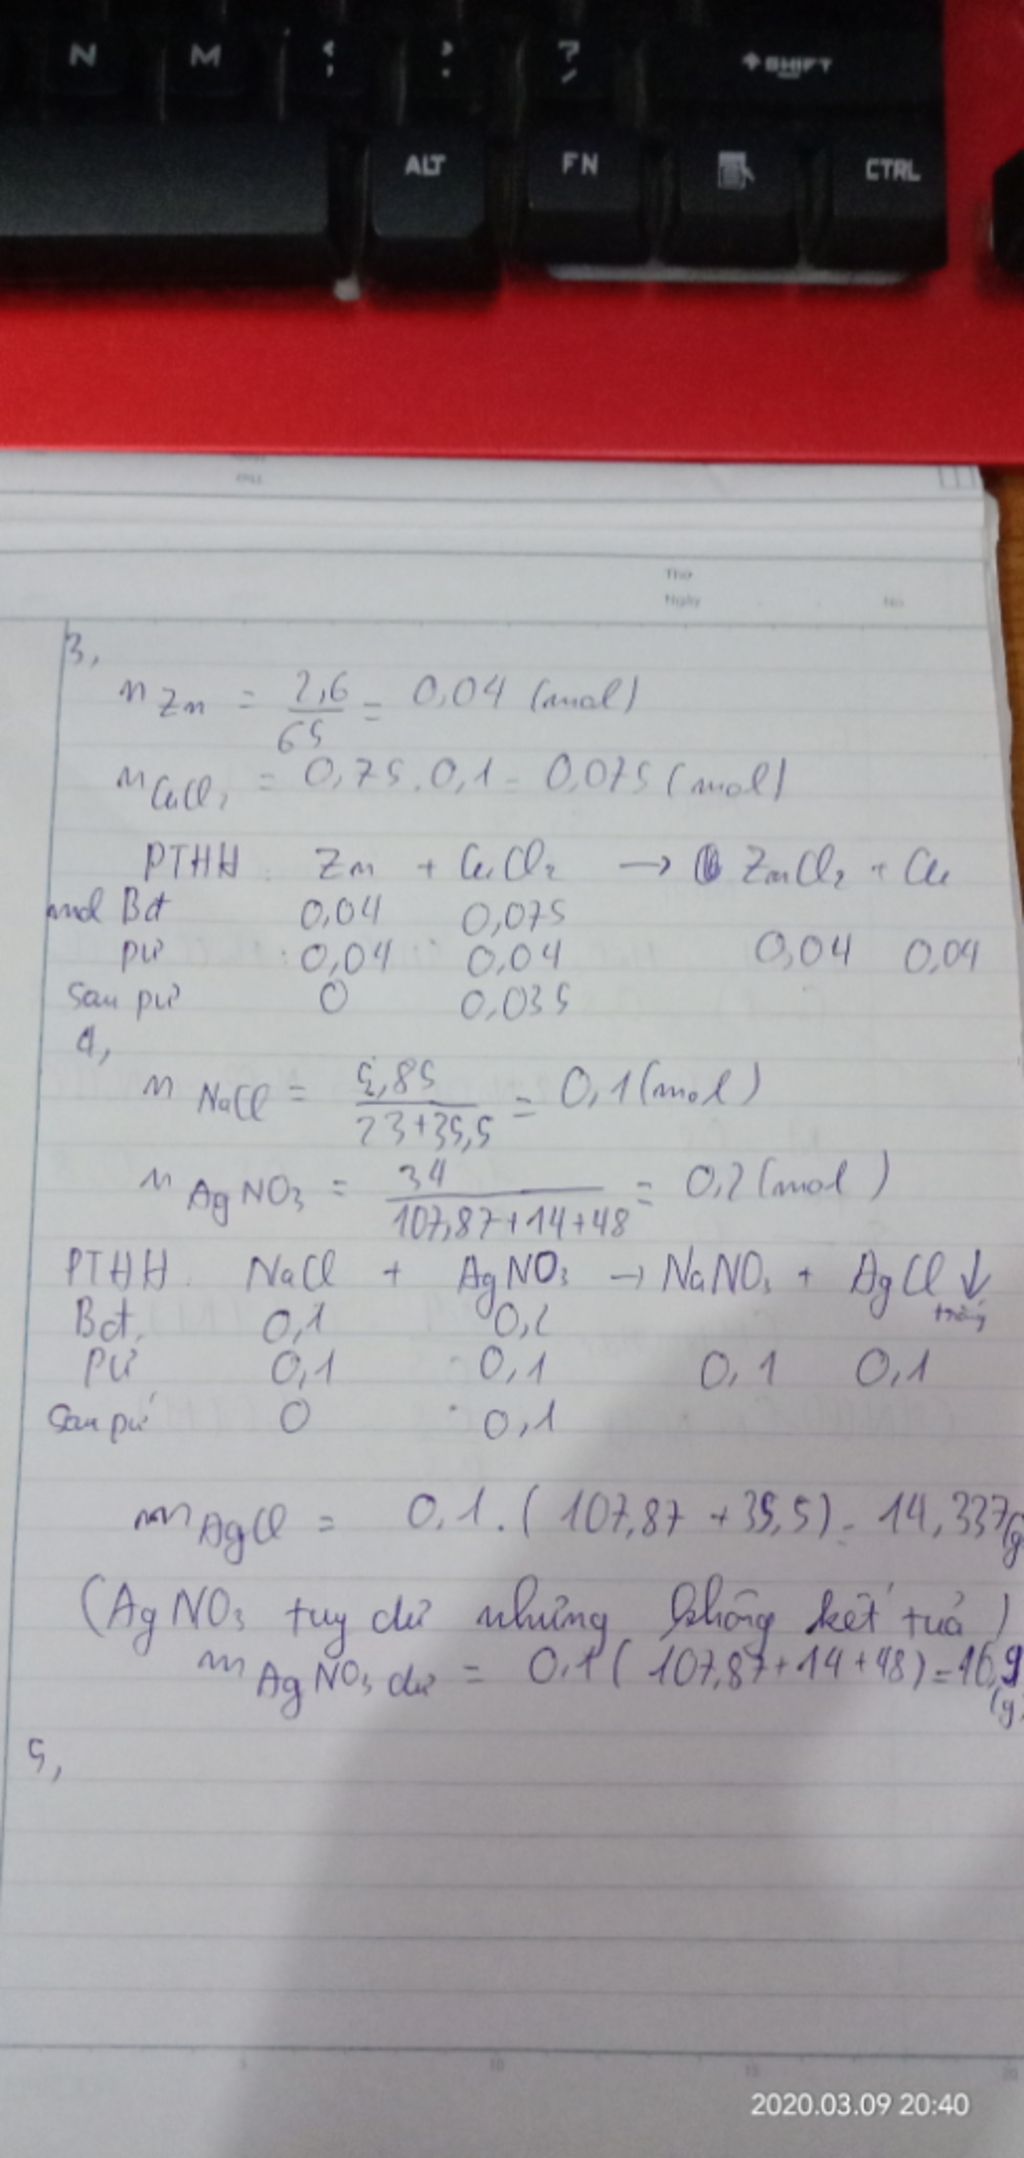 N M ; . ? / SHIFT
ALT FN CTRL
Thứ
Ngày No
3,
n Zn = 2,6/65 = 0,04 (mol)
n CuCl2 = 0,75.0,1 = 0,075 (mol)
PTHH: Zn + CuCl2 → ZnCl2 + Cu
mol Bđ 0,04 0,075
pứ 0,04 0,04 0,04 0,04
Sau pứ 0 0,035
4,
n NaCl = 5,85/23+35,5 = 0,1 (mol)
n AgNO3 = 34/107,87+14+48 = 0,2 (mol)
PTHH: NaCl + AgNO3 → NaNO3 + AgCl ↓
trắng
Bđ, 0,1 0,2
pứ 0,1 0,1 0,1 0,1
Sau pứ 0 0,1
m AgCl = 0,1.(107,87+35,5) = 14,337 (g
(AgNO3 tuy dư nhưng không kết tủa)
m AgNO3 dư = 0,1(107,87+14+48) = 16,9
(g)
5,
5 10 15 20
2020.03.09 20:40